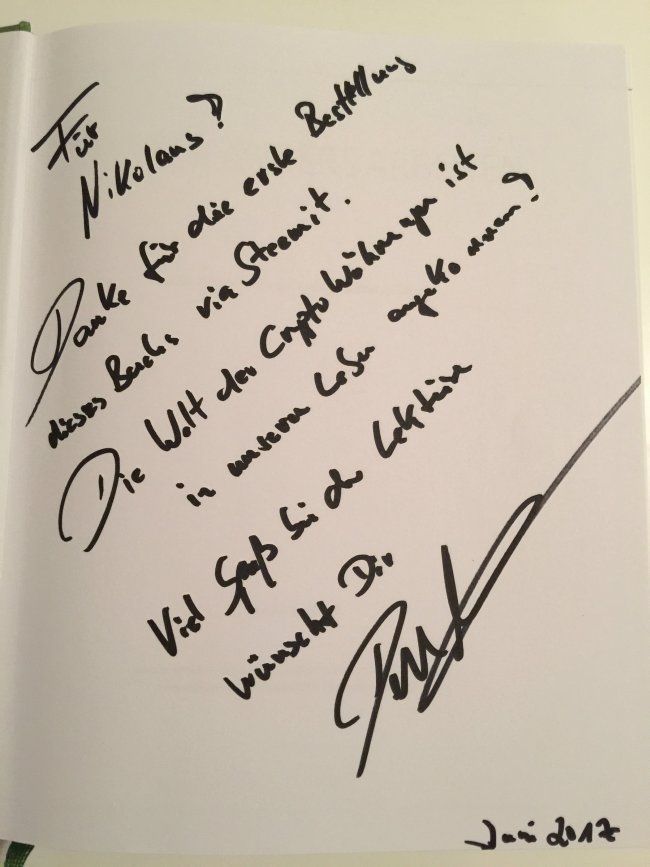 Für
Nikolaus!
Danke für die erste Bestellung
dieses Buchs via Steemit.
Die Welt der Crypto Währungen ist
in unserem Leben angekommen!
Viel Spaß bei der Lektüre
wünscht Dir
Juni 2017